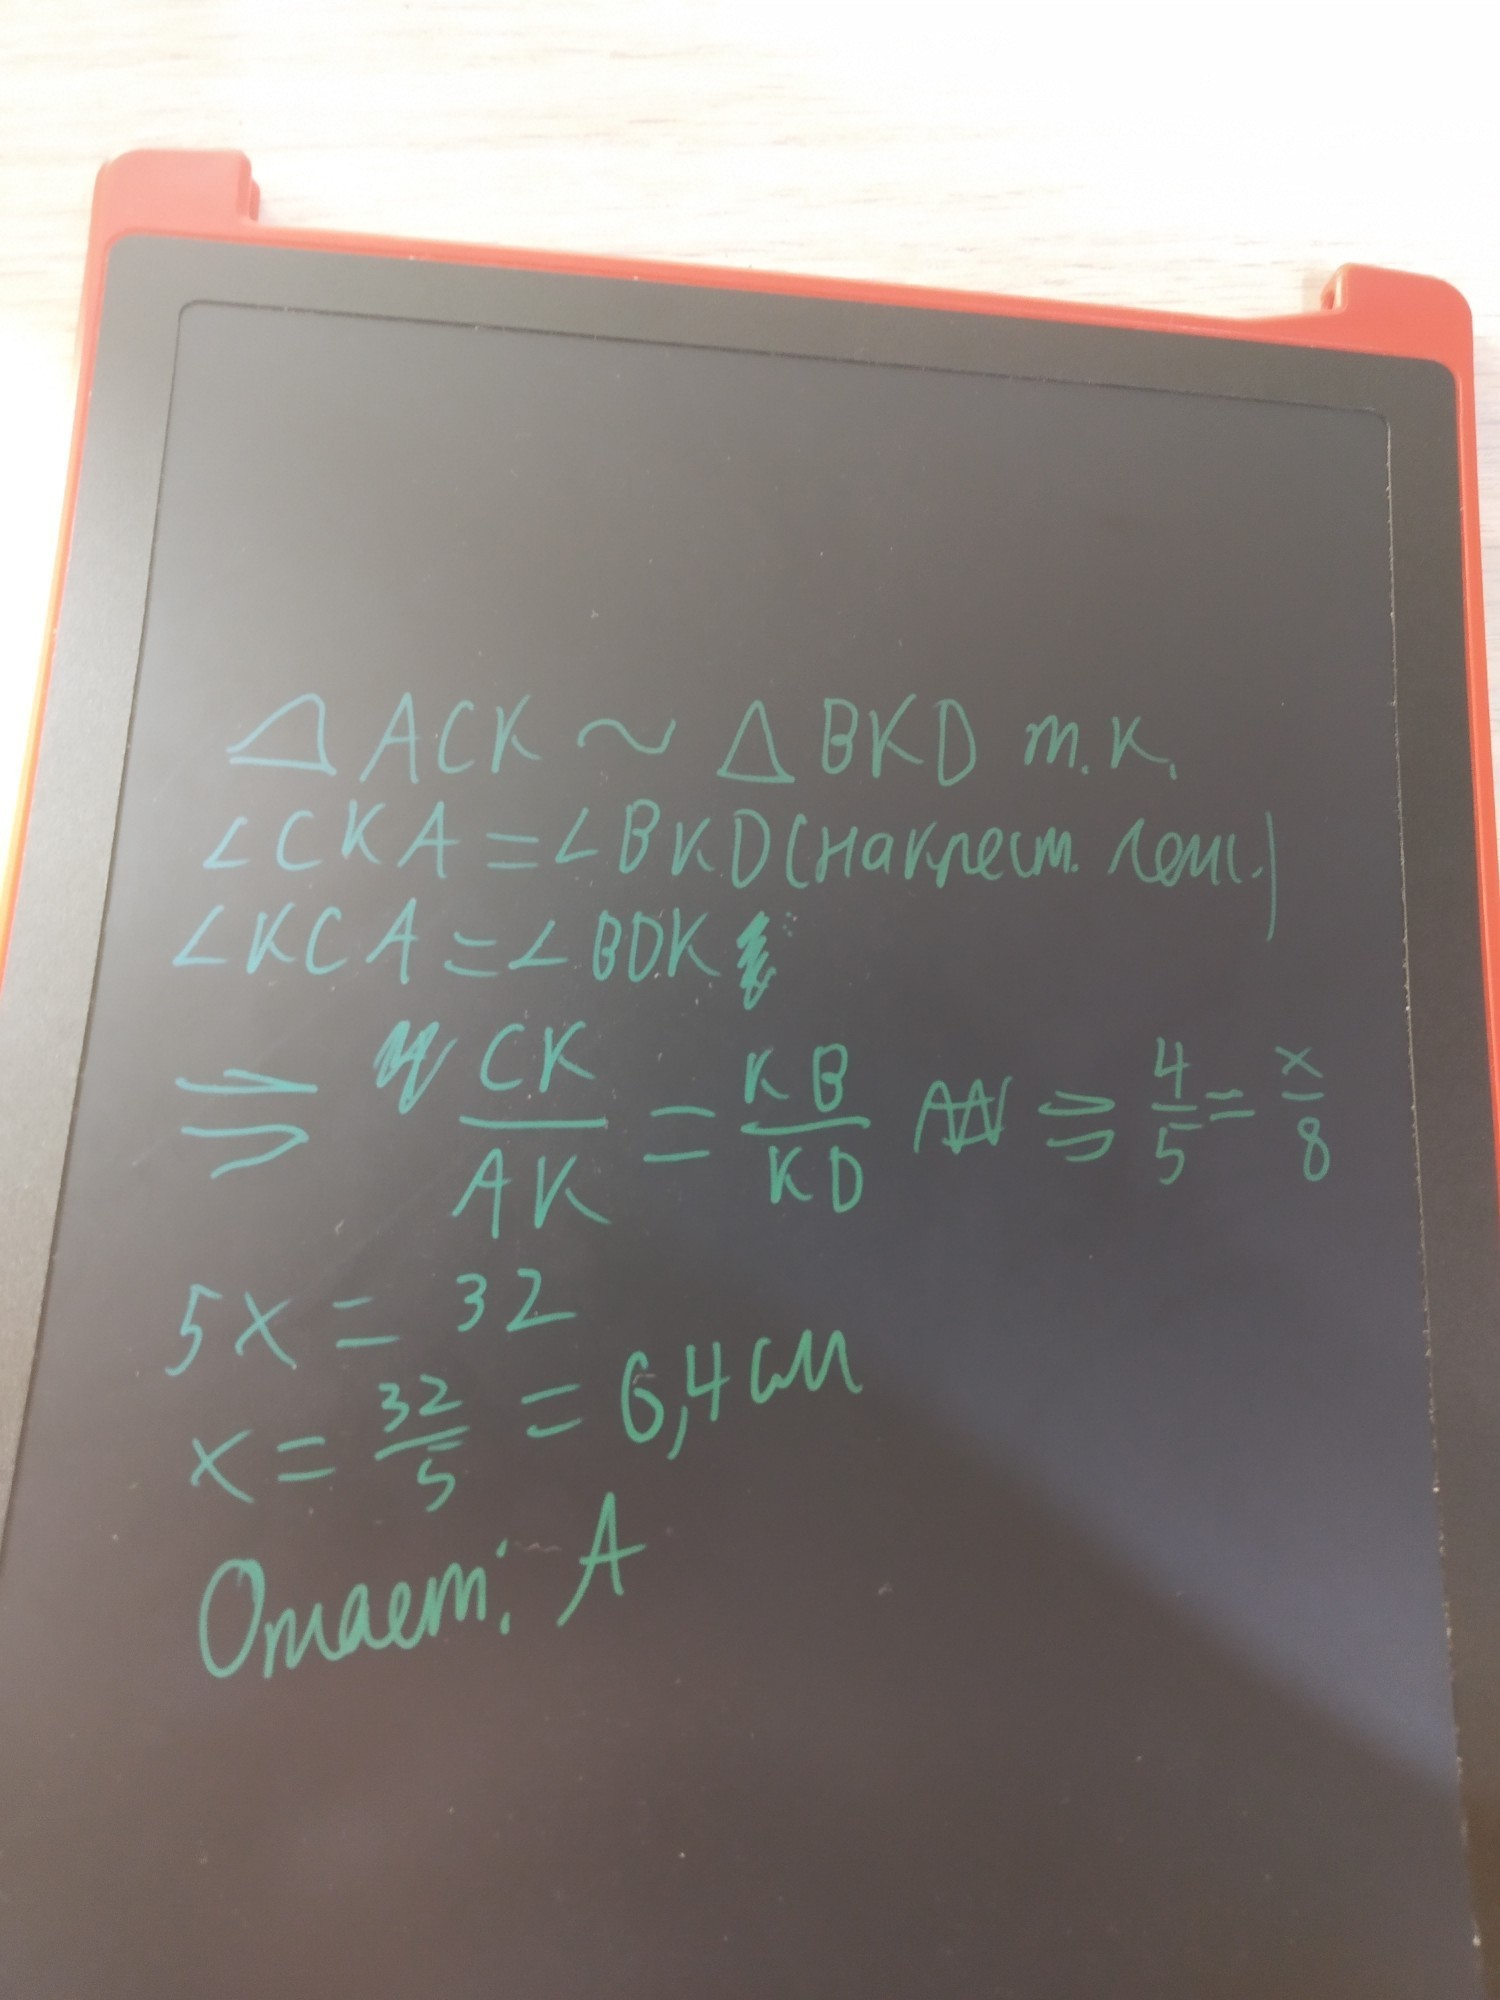 △ ACK ~ △ BKD т.к.
∠CKA = ∠BKD (накрест. леж.)
∠KCA = ∠BDK
⇒ CK/AK = KB/KD ⇒ 4/5 = x/8
5x = 32
x = 32/5 = 6,4 см
Ответ: А